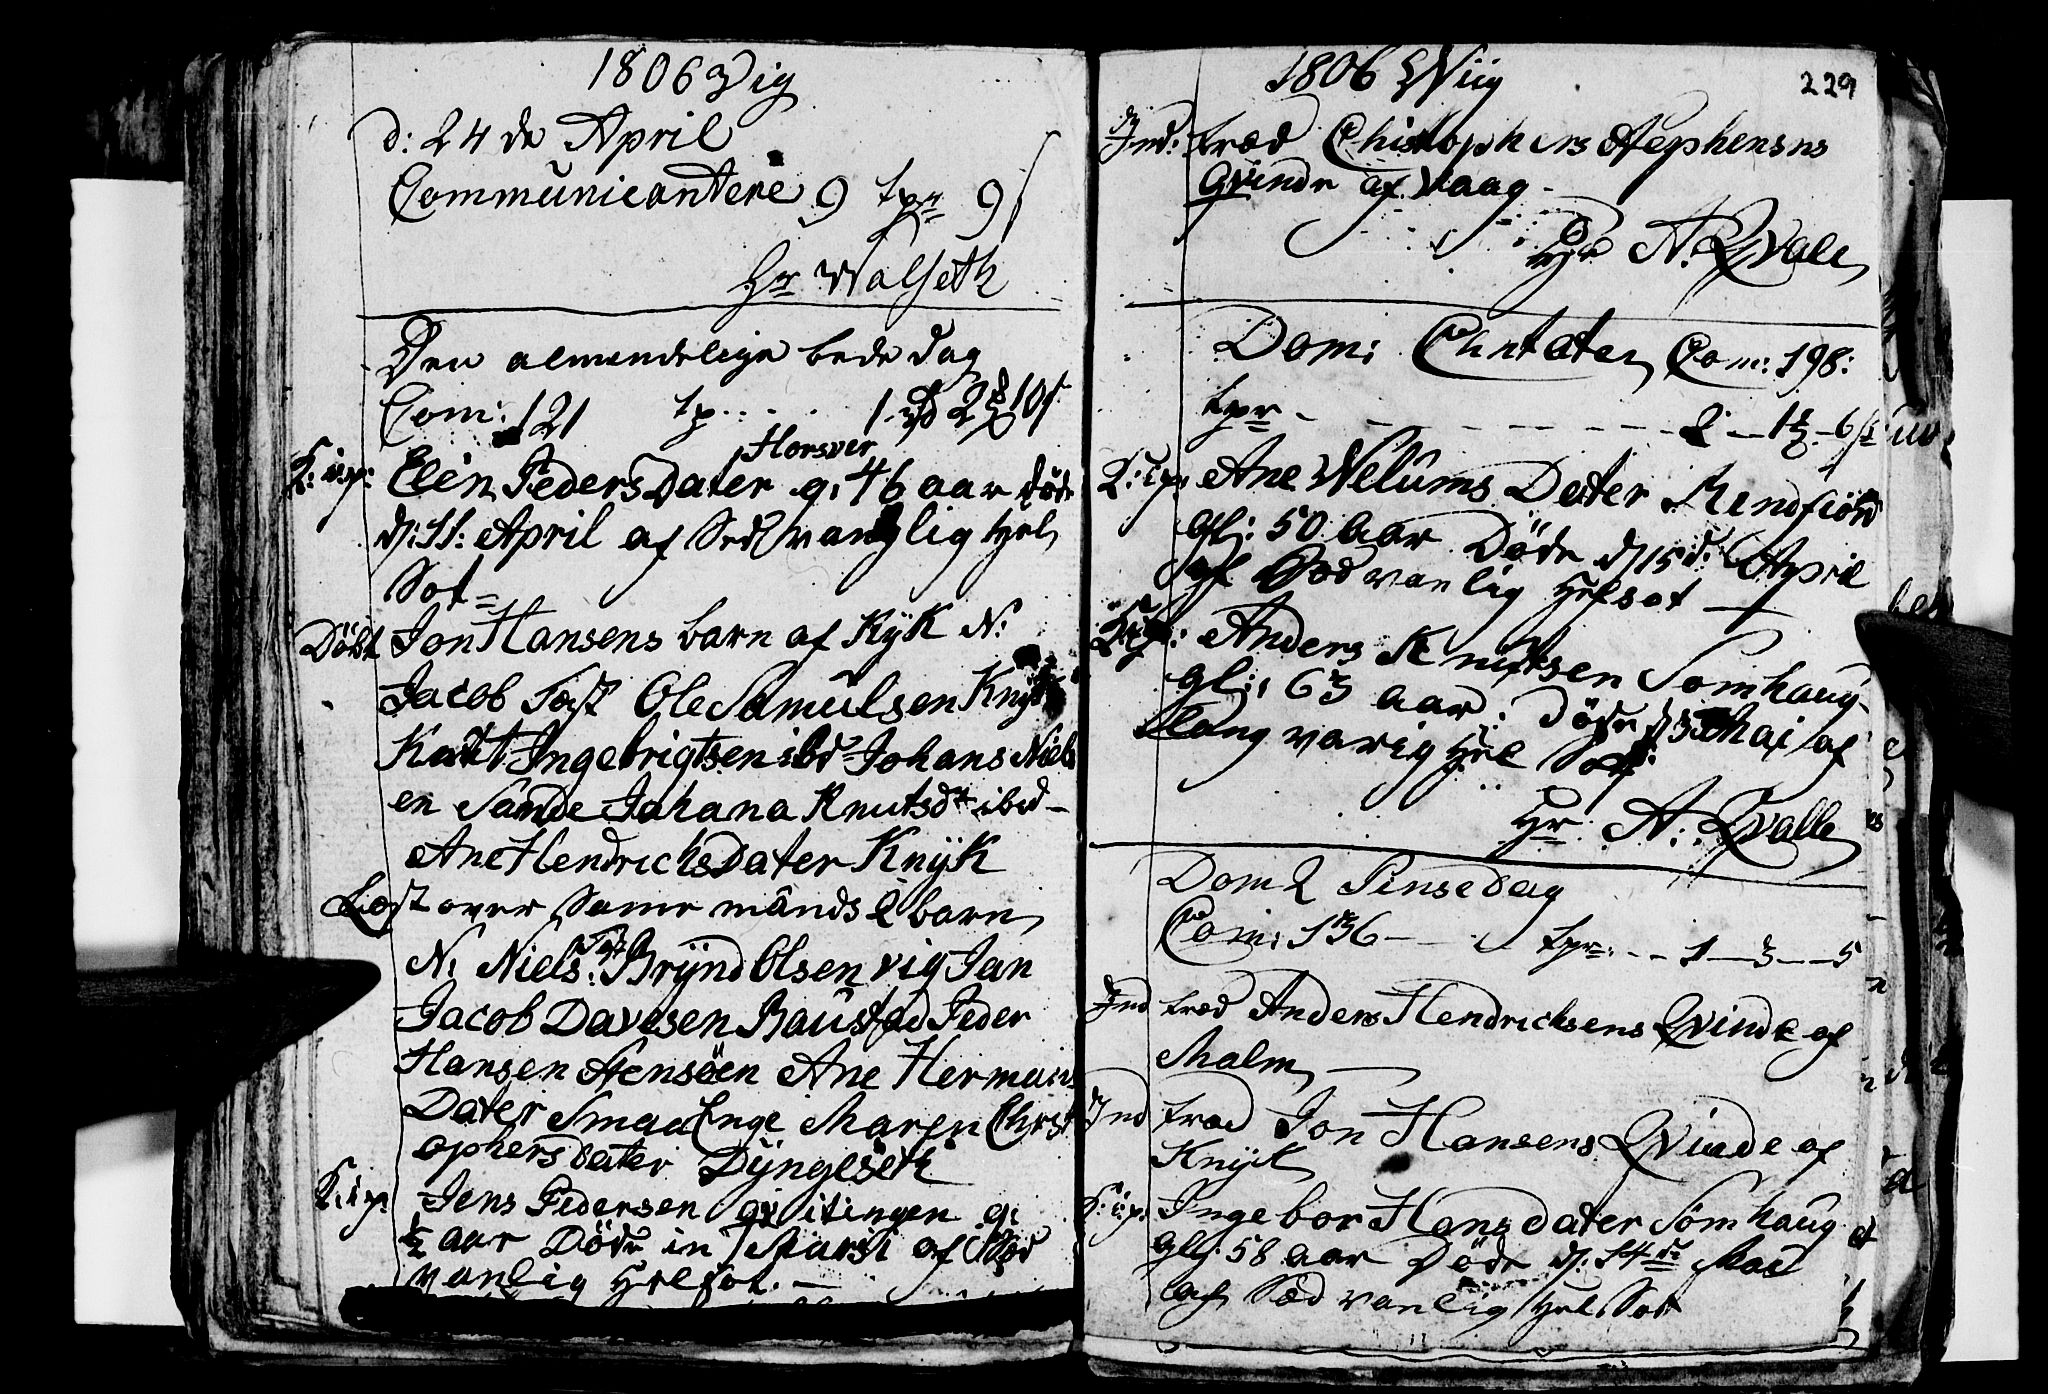 1806 Vig
d: 24 de April
Communicantere 9 tpr 9 s
Hr Walseth
Den almindelige bede dag
Com: 121 tp. . . . 1 rd 2 10 s
Horsver
K: i p: Elen PedersDater g: 46 aar döde
d: 11: April af Sedvanglig Hel
Sot
Döbt Jon Hansens barn af Kyk N:
Jacob Test Ole Samulsen Knyk
Knut Ingebrigtsen ibd Johans Niels
en Sande Johana Knutsdt ibid
Ane HendrichsDater Knÿk
Læst over Same mands 2 barn
N: Niels: Test Brÿnd Olsen vig Jan
Jacob Davesen Baustad Peder
Hansen Stensöen Ane Herman
Dater SmaaEnge Maren Christ
ophersdater Dÿngeseth
K: i p: Jens Pedersen qvitingen g:
½ aar Döde in Marti af Sæd
vanlig Helsot. —
1806 Wiig
229
Ind: træd Christophers Stephensns
Qvinde af Vaag -
Hr A. Qvale
Dom: Cantate Com: 198:
tpr - - - 2 - 1 - 6 s
K: i p: Ane Welums Dater Mendfiörd
gl: 50 aar Döde d 15 d: April
af Sædvanlig Helsot
K: i p: Anders Knutsen Somhaug
gl: 63 aar: döde d 3 Mai af
Langvarig Hel Sot
Hr A: Qvalle
Dom 2 Pinsedag
Com: 136 - - tpr: - - 1 - 3 - - 5
Ind træd Anders Hendrichsens Qvinde af
Malm
Ind træd Jon Hansens Qvinde af
Knÿk
K: i p: Ingebor Hansdater Somhaug
gl: 58 aar Döde d: 14 de Mai
af Sædvanlig Hel Sot